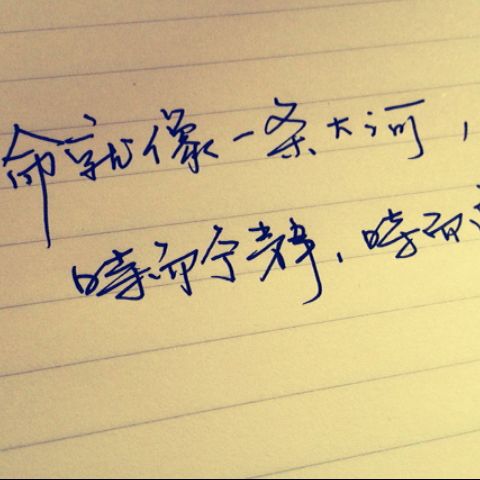 命就像一条大河，
時而宁静，時而